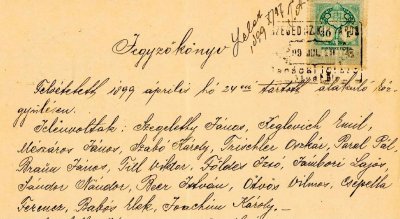 Jegyzőkönyv
Felvétetett 1899 április hó 24-én tartott alakuló köz-
gyűlésen.
Jelenvoltak: Szegeletthy János, Keglovich Emil,
Mészáros János, Szabó Károly, Trischler Oszkár, Pavel Pál,
Braun János, Till Viktor, Földes Izsó, Zámbori Lajos,
Sándor Nándor, Baer István, Ötvös Vilmos, Csepella
Ferencz, Babós Elek, Joachim Károly.—